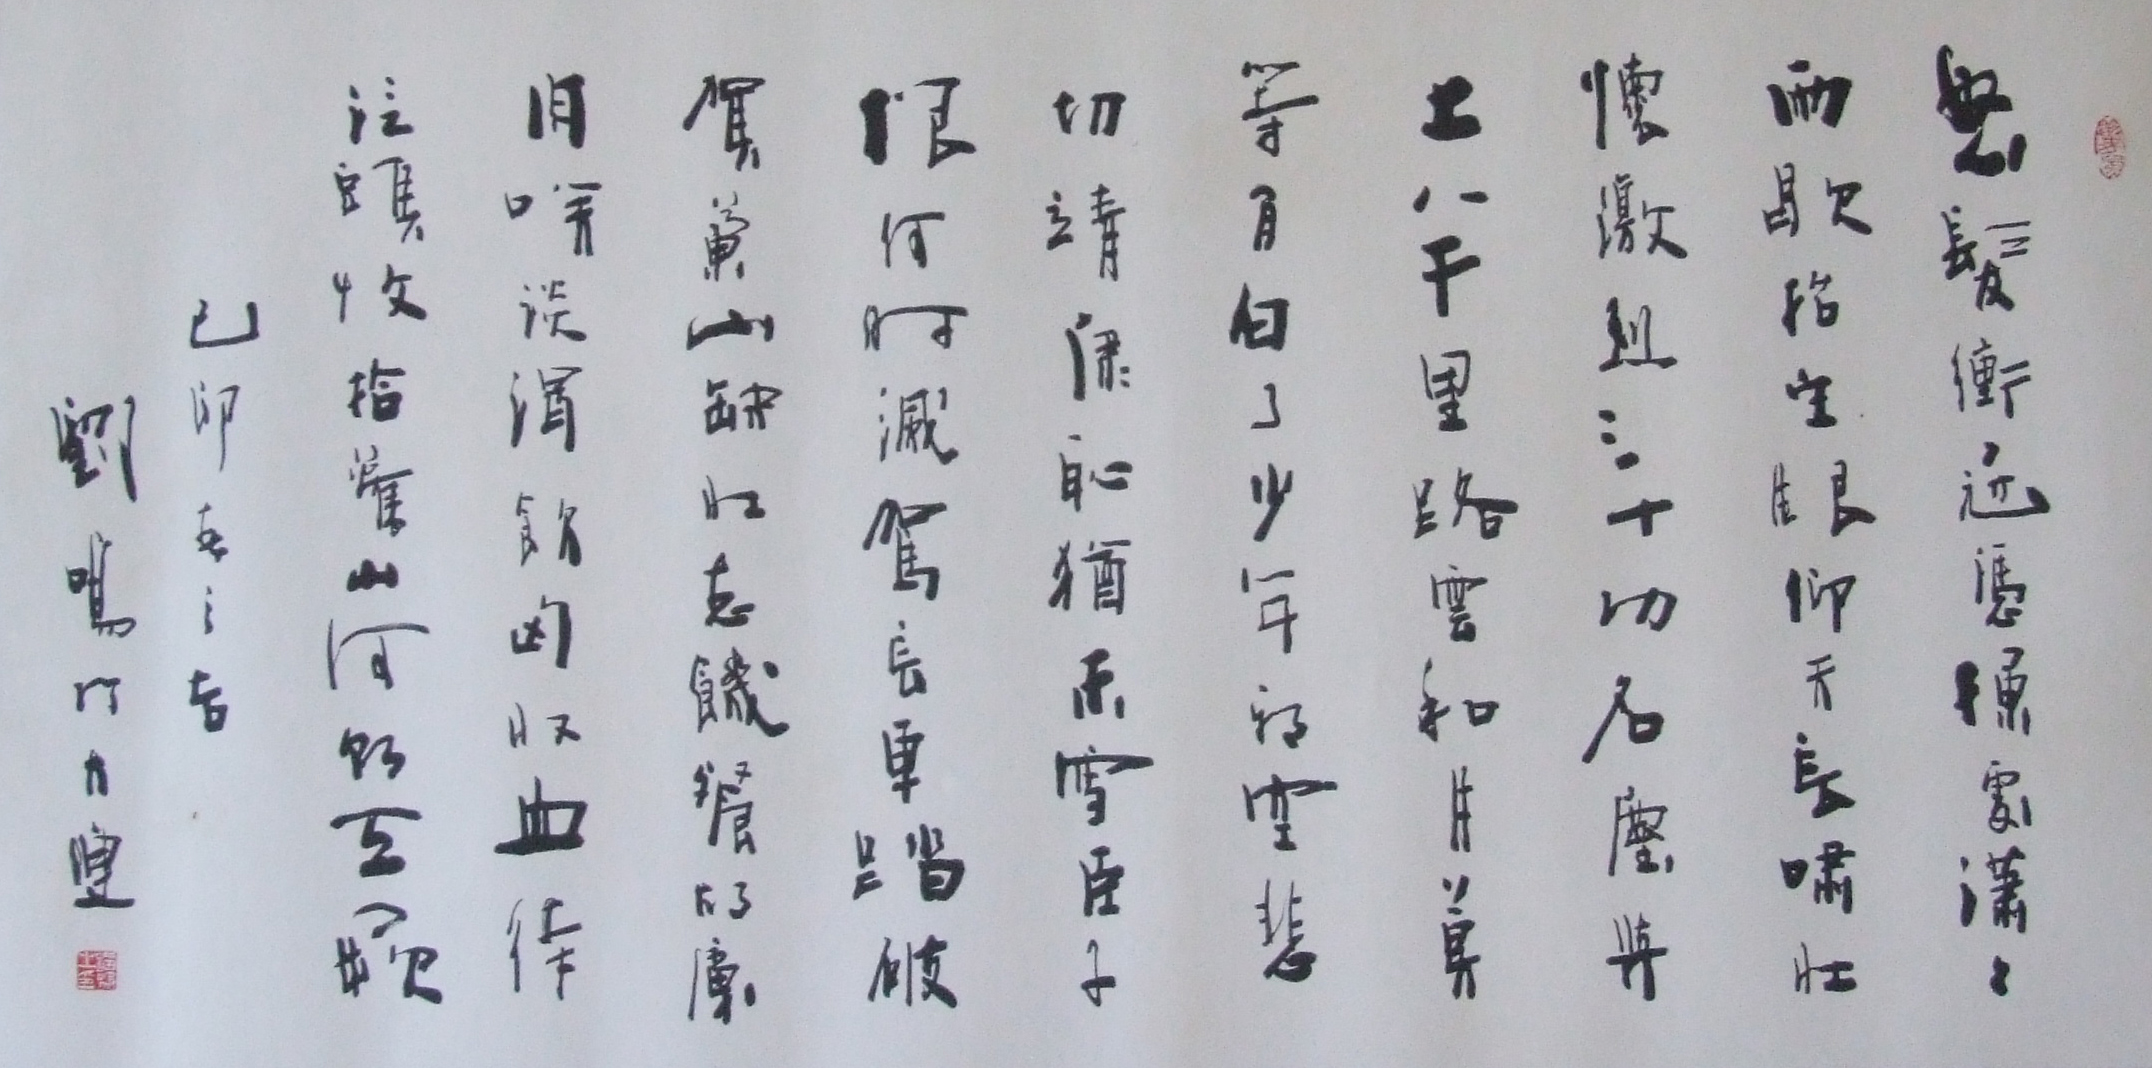 怒髮衝冠憑欄處瀟〻
雨歇抬望眼仰天長嘯壯
懷激烈三十功名塵與
土八千里路雲和月莫
等閒白了少年頭空悲
切靖康恥猶未雪臣子
恨何時滅駕長車踏破
賀蘭山缺壯志饑餐胡虜
肉笑談渴飲匈奴血待
從頭收拾舊山河朝天闕
己卯春之吉
劉鳴